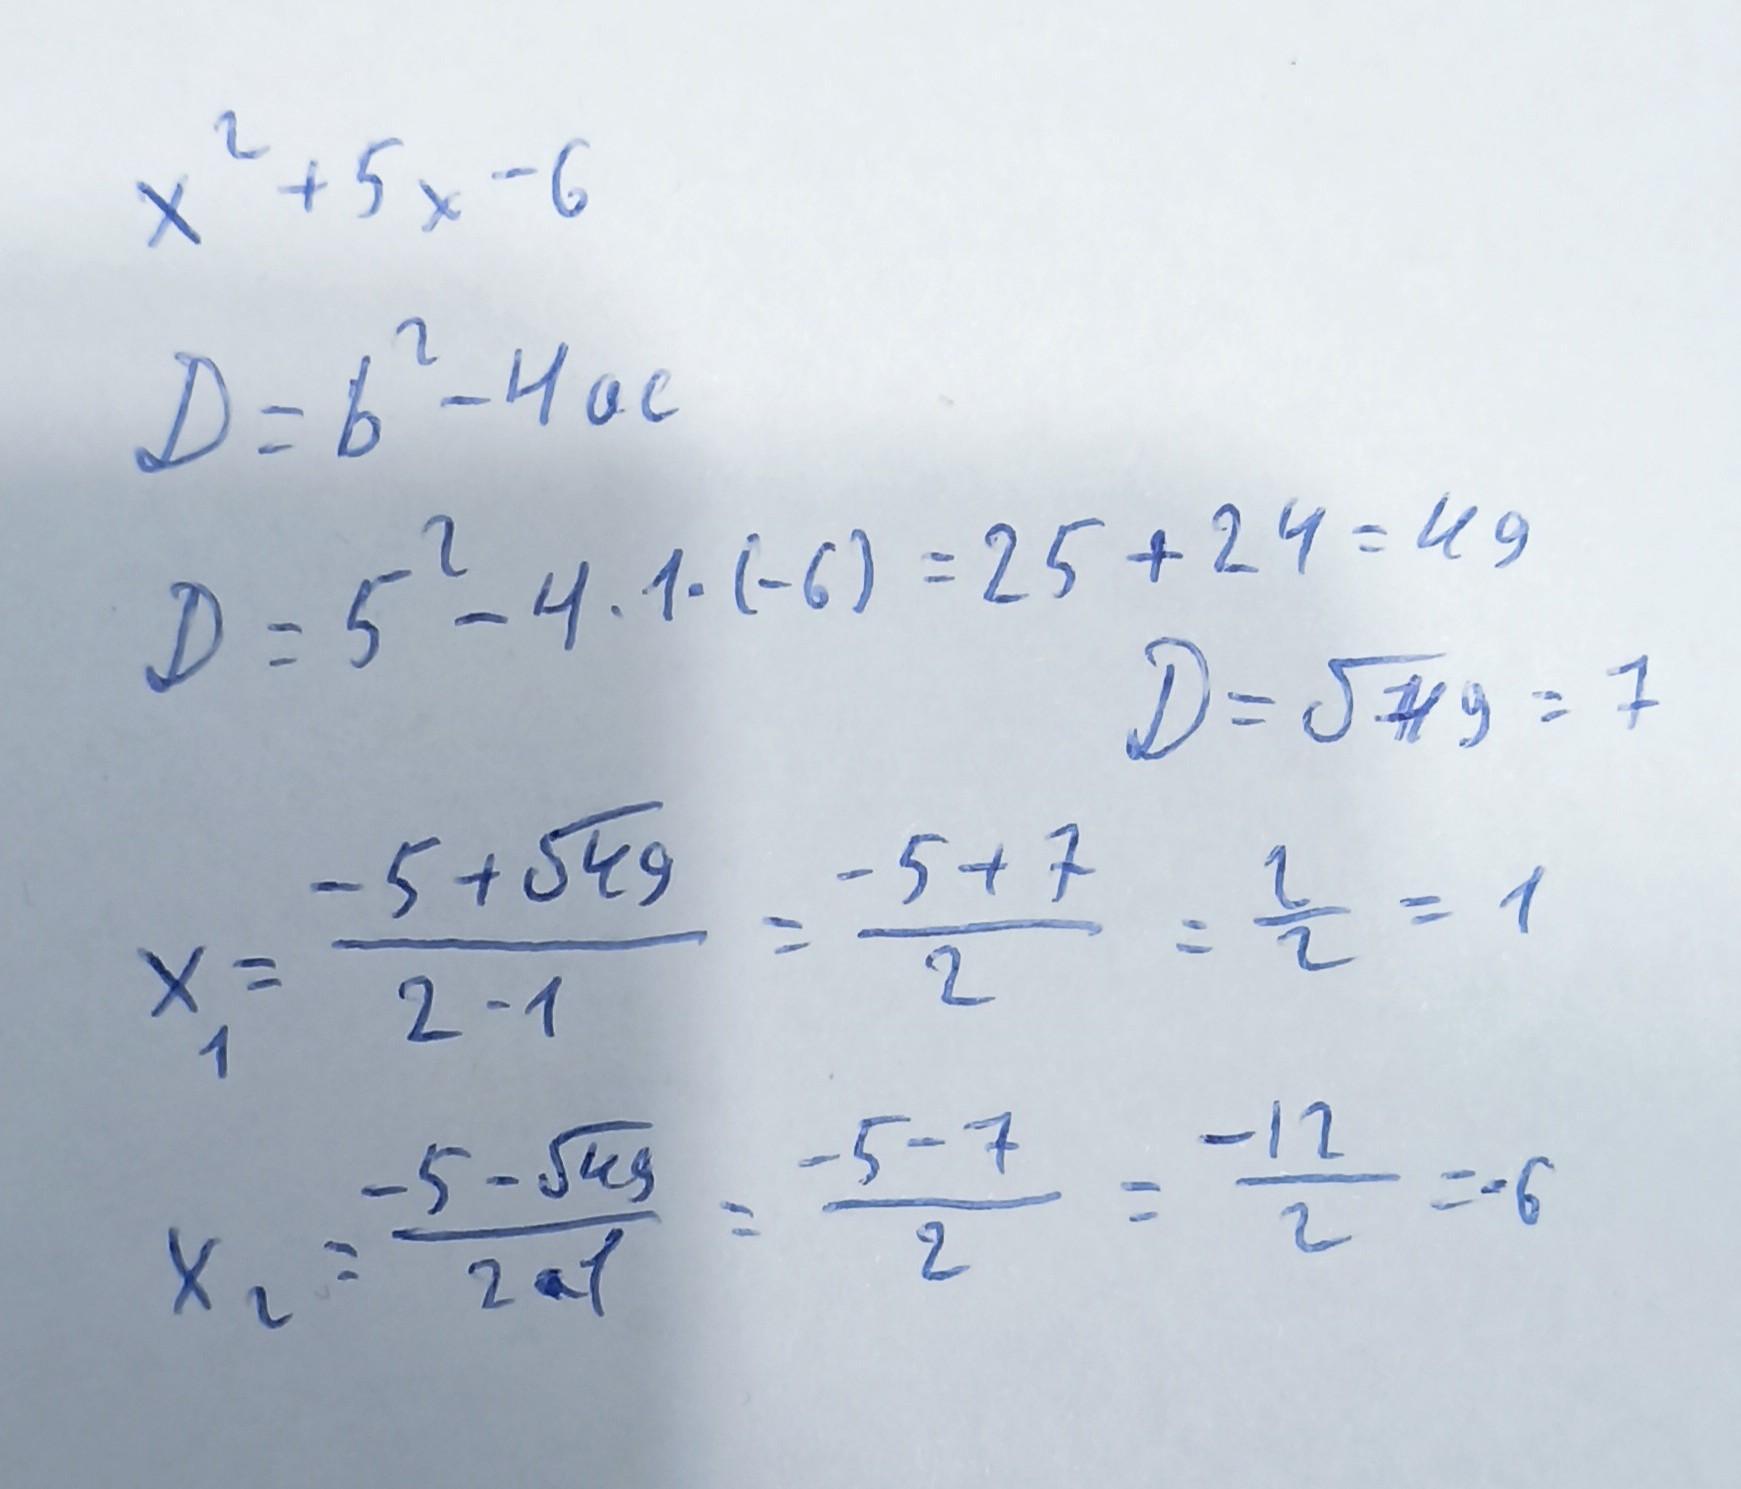 x² + 5x - 6
D = b² - 4ac
D = 5² - 4 · 1 · (-6) = 25 + 24 = 49
D = √49 = 7
x₁ = (-5 + √49)/(2 · 1) = (-5 + 7)/2 = 2/2 = 1
x₂ = (-5 - √49)/(2 · 1) = (-5 - 7)/2 = -12/2 = -6